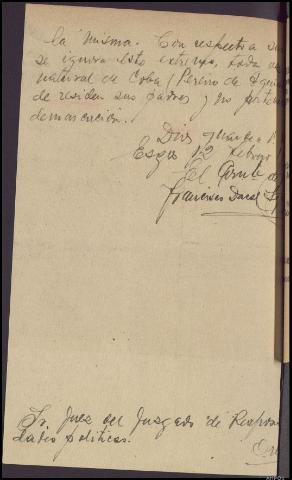 la misma. Con respecto a su
se ignora este extremo, toda ve
natural de Coba, Pereiro de Agui
donde residen sus padres y no perten
demarcación.
Dios guarde a
Esgos 12 Febrero
El Comte de
Francisco
Sr. Juez del Juzgado de Respons
dades políticas.
Ore